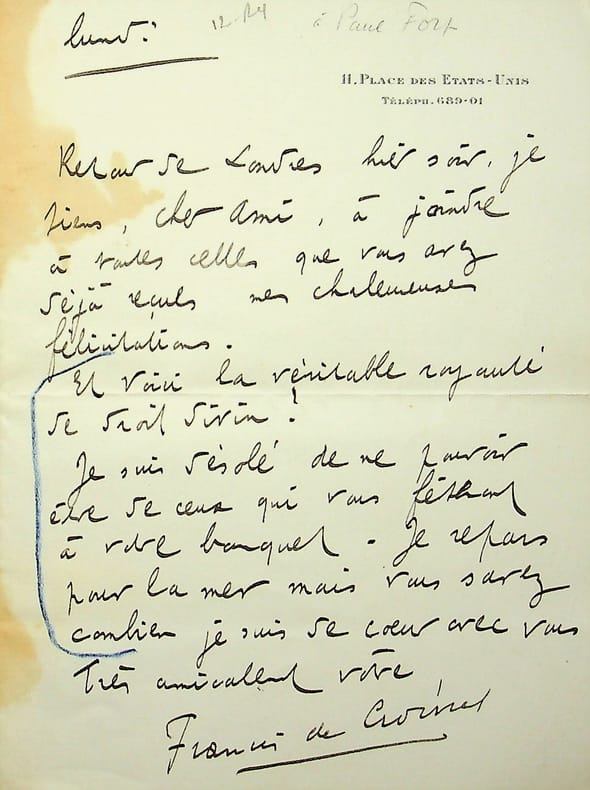 lundi
à Paul Fort
11. PLACE DES ETATS-UNIS
TÉLÉPH. 689-01
Retour de Londres hier soir, je
tiens, cher Ami, à joindre
à toutes celles que vous avez
déjà reçues mes chaleureuses
félicitations.
Et voici la véritable royauté
de droit divin !
Je suis désolé de ne pouvoir
être de ceux qui vous fêteront
à votre banquet - Je repars
pour la mer mais vous savez
combien je suis de cœur avec vous
Très amicalement votre
Francis de Croisset